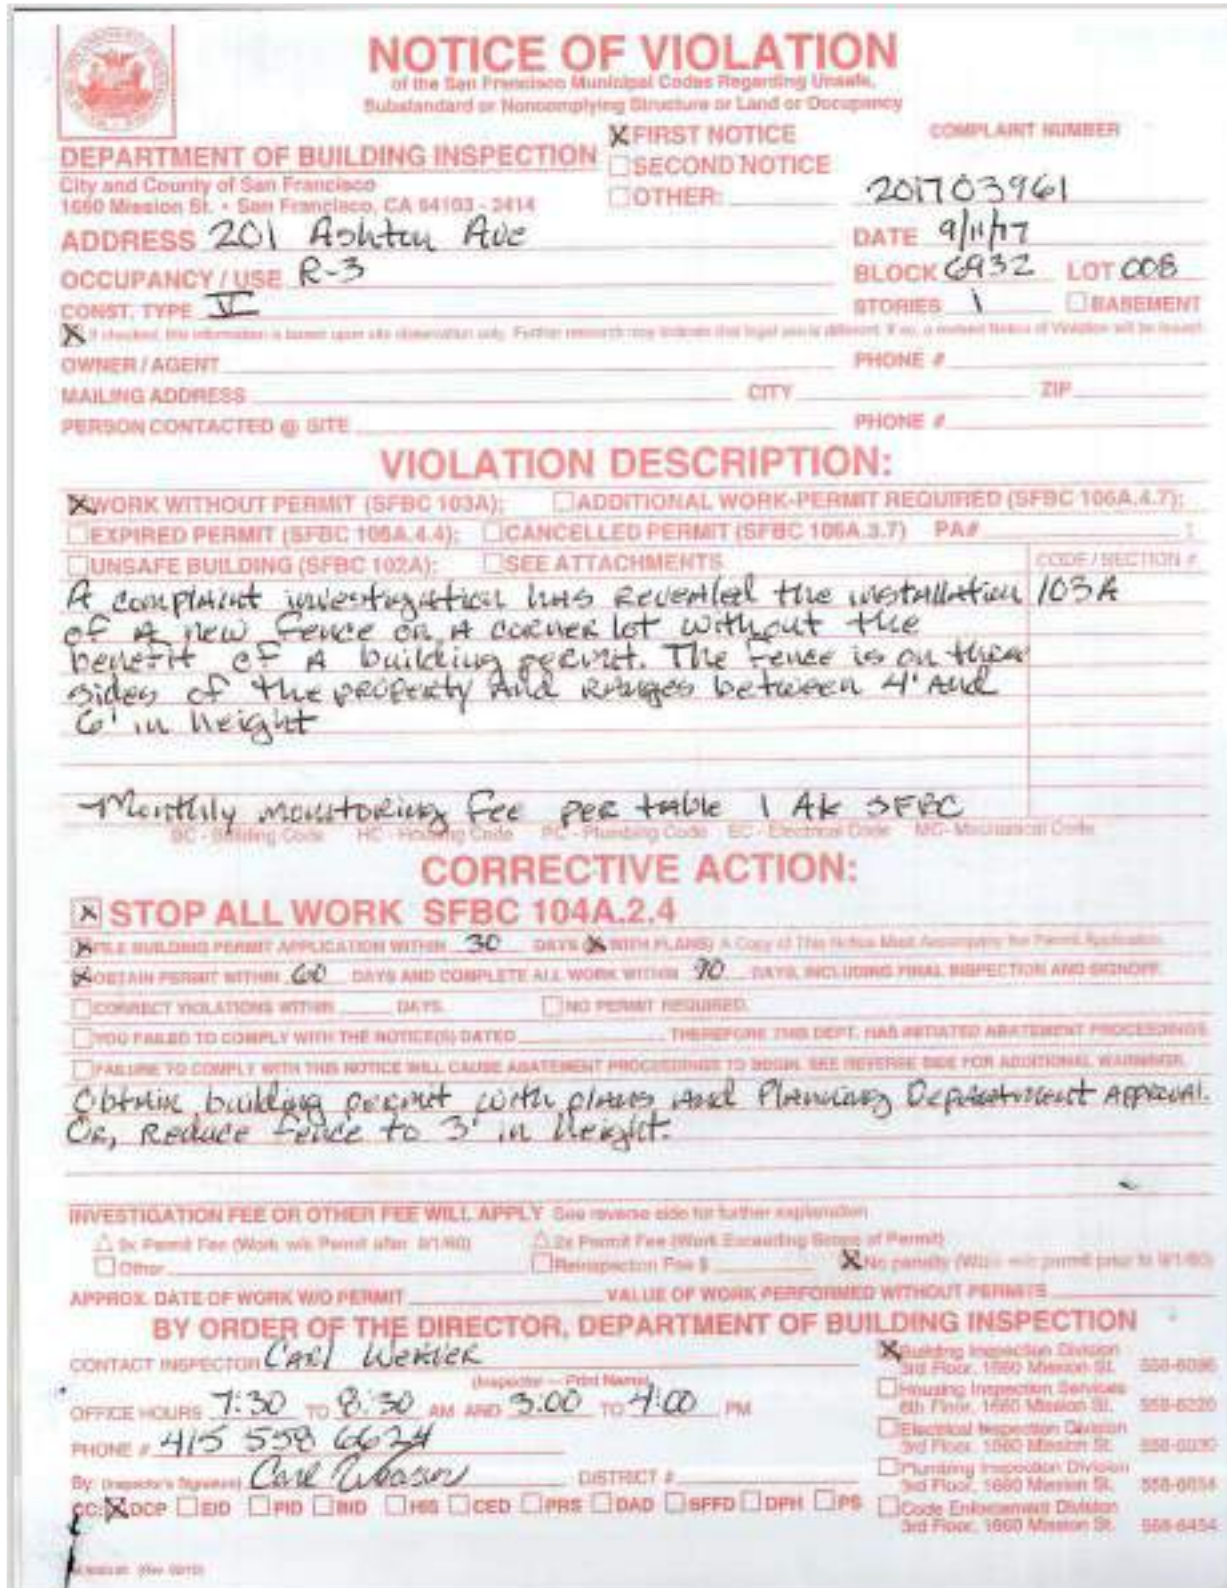 NOTICE OF VIOLATION
of the San Francisco Municipal Codes Regarding Unsafe,
Substandard or Noncomplying Structure or Land or Occupancy
DEPARTMENT OF BUILDING INSPECTION
City and County of San Francisco
1660 Mission St. • San Francisco, CA 94103 - 2414
X FIRST NOTICE
☐ SECOND NOTICE
☐ OTHER:
COMPLAINT NUMBER
201703961
ADDRESS 201 Ashton Ave DATE 9/11/17
OCCUPANCY / USE R-3 BLOCK 6932 LOT 008
CONST. TYPE V STORIES 1 ☐ BASEMENT
X If checked, this information is based upon site observation only. Further research may indicate that legal use is different. If so, a revised Notice of Violation will be issued.
OWNER / AGENT PHONE #
MAILING ADDRESS CITY ZIP
PERSON CONTACTED @ SITE PHONE #
VIOLATION DESCRIPTION:
X WORK WITHOUT PERMIT (SFBC 103A); ☐ ADDITIONAL WORK-PERMIT REQUIRED (SFBC 106A.4.7);
☐ EXPIRED PERMIT (SFBC 106A.4.4); ☐ CANCELLED PERMIT (SFBC 106A.3.7) PA#
☐ UNSAFE BUILDING (SFBC 102A); ☐ SEE ATTACHMENTS CODE / SECTION #
A complaint investigation has revealed the installation 103A
of a new fence on a corner lot without the
benefit of a building permit. The fence is on three
sides of the property and ranges between 4' and
6' in height
Monthly monitoring fee per table 1 AK SFBC
BC - Building Code HC - Housing Code PC - Plumbing Code EC - Electrical Code MC - Mechanical Code
CORRECTIVE ACTION:
X STOP ALL WORK SFBC 104A.2.4
X FILE BUILDING PERMIT APPLICATION WITHIN 30 DAYS (X WITH PLANS) A Copy of This Notice Must Accompany the Permit Application.
X OBTAIN PERMIT WITHIN 60 DAYS AND COMPLETE ALL WORK WITHIN 90 DAYS, INCLUDING FINAL INSPECTION AND SIGNOFF.
☐ CORRECT VIOLATIONS WITHIN DAYS. ☐ NO PERMIT REQUIRED.
☐ YOU FAILED TO COMPLY WITH THE NOTICE(S) DATED , THEREFORE THIS DEPT. HAS INITIATED ABATEMENT PROCEEDINGS.
☐ FAILURE TO COMPLY WITH THIS NOTICE WILL CAUSE ABATEMENT PROCEEDINGS TO BEGIN. SEE REVERSE SIDE FOR ADDITIONAL WARNINGS.
Obtain building permit with plans and Planning Department approval.
Or, Reduce fence to 3' in height.
INVESTIGATION FEE OR OTHER FEE WILL APPLY See reverse side for further explanation
△ 9x Permit Fee (Work w/o Permit after 9/1/60) △ 2x Permit Fee (Work Exceeding Scope of Permit)
☐ Other ☐ Reinspection Fee $ X No penalty (Work w/o permit prior to 9/1/60)
APPROX. DATE OF WORK W/O PERMIT VALUE OF WORK PERFORMED WITHOUT PERMITS
BY ORDER OF THE DIRECTOR, DEPARTMENT OF BUILDING INSPECTION
CONTACT INSPECTOR Carl Weaver
(Inspector — Print Name)
OFFICE HOURS 7:30 TO 8:30 AM AND 3:00 TO 4:00 PM
PHONE # 415 558 6624
By: (Inspector's Signature) Carl Weaver DISTRICT #
CC: X DCP ☐ EID ☐ PID ☐ BID ☐ HIS ☐ CED ☐ PRS ☐ DAD ☐ SFFD ☐ DPH ☐ PS
X Building Inspection Division
3rd Floor, 1660 Mission St. 558-6096
☐ Housing Inspection Services
6th Floor, 1660 Mission St. 558-6220
☐ Electrical Inspection Division
3rd Floor, 1660 Mission St. 558-6030
☐ Plumbing Inspection Division
3rd Floor, 1660 Mission St. 558-6054
☐ Code Enforcement Division
3rd Floor, 1660 Mission St. 558-6454